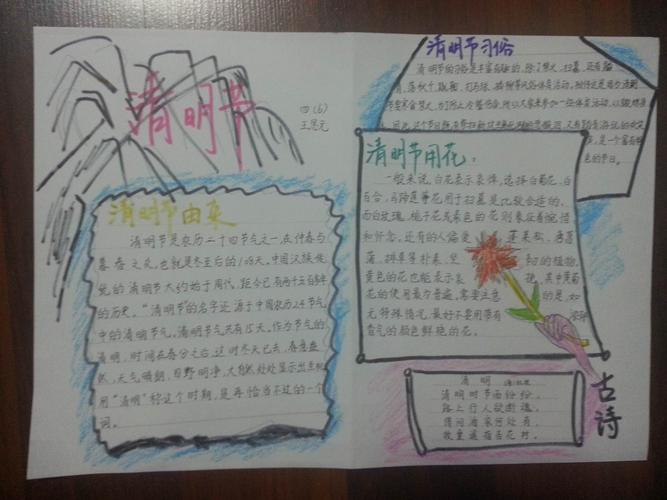 清明节
四(6)
王思元
清明节由来
清明节是农历二十四节气之一,在仲春与
暮春之交,也就是冬至后的108天。中国汉族传
统的清明节大约始于周代,距今已有两千五百多年
的历史。“清明节”的名字还源于中国农历24节气
中的清明节气。清明节气共有15天。作为节气的
清明,时间在春分之后,这时冬天已去,春意盎
然,天气晴朗,四野明净,大自然处处显示出生机
用“清明”称这个时期,是再恰当不过的一个
词。
清明节习俗
清明节的习俗是丰富有趣的,除了禁火、扫墓,还有踏
青、荡秋千、蹴鞠、打马球、插柳等风俗体育活动。相传这是因为清明
节要寒食禁火,为了防止冷餐伤身,所以大家来参加一些体育活动,以锻炼身
是一个富有特
色的节日。
清明节用花:
一般来说,白花表示哀悼,选择白菊花、白
百合、马蹄莲等花用于扫墓是比较合适的,
而白玫瑰、栀子花或素色的花则象征着惋惜
和怀念。还有的人偏爱 蓬莱松、唐菖
蒲、排草等朴素、坚 韧的植物。
黄色的花也能表示哀 挽,其中黄菊
花的使用最为普遍。需要注意 的是,如
无特殊情况,最好不要用带有 浓郁
香气的颜色鲜艳的花。
清 明 (唐)杜牧
清明时节雨纷纷,
路上行人欲断魂。
借问酒家何处有,
牧童遥指杏花村。
古诗